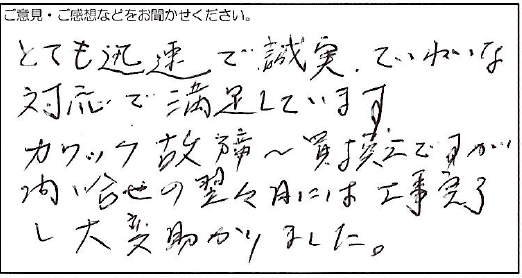 ご意見・ご感想などをお聞かせください。
とても迅速で誠実、ていねいな
対応で満足しています
カワック故障～買換えですが
問い合せの翌々日には工事完了
し大変助かりました。